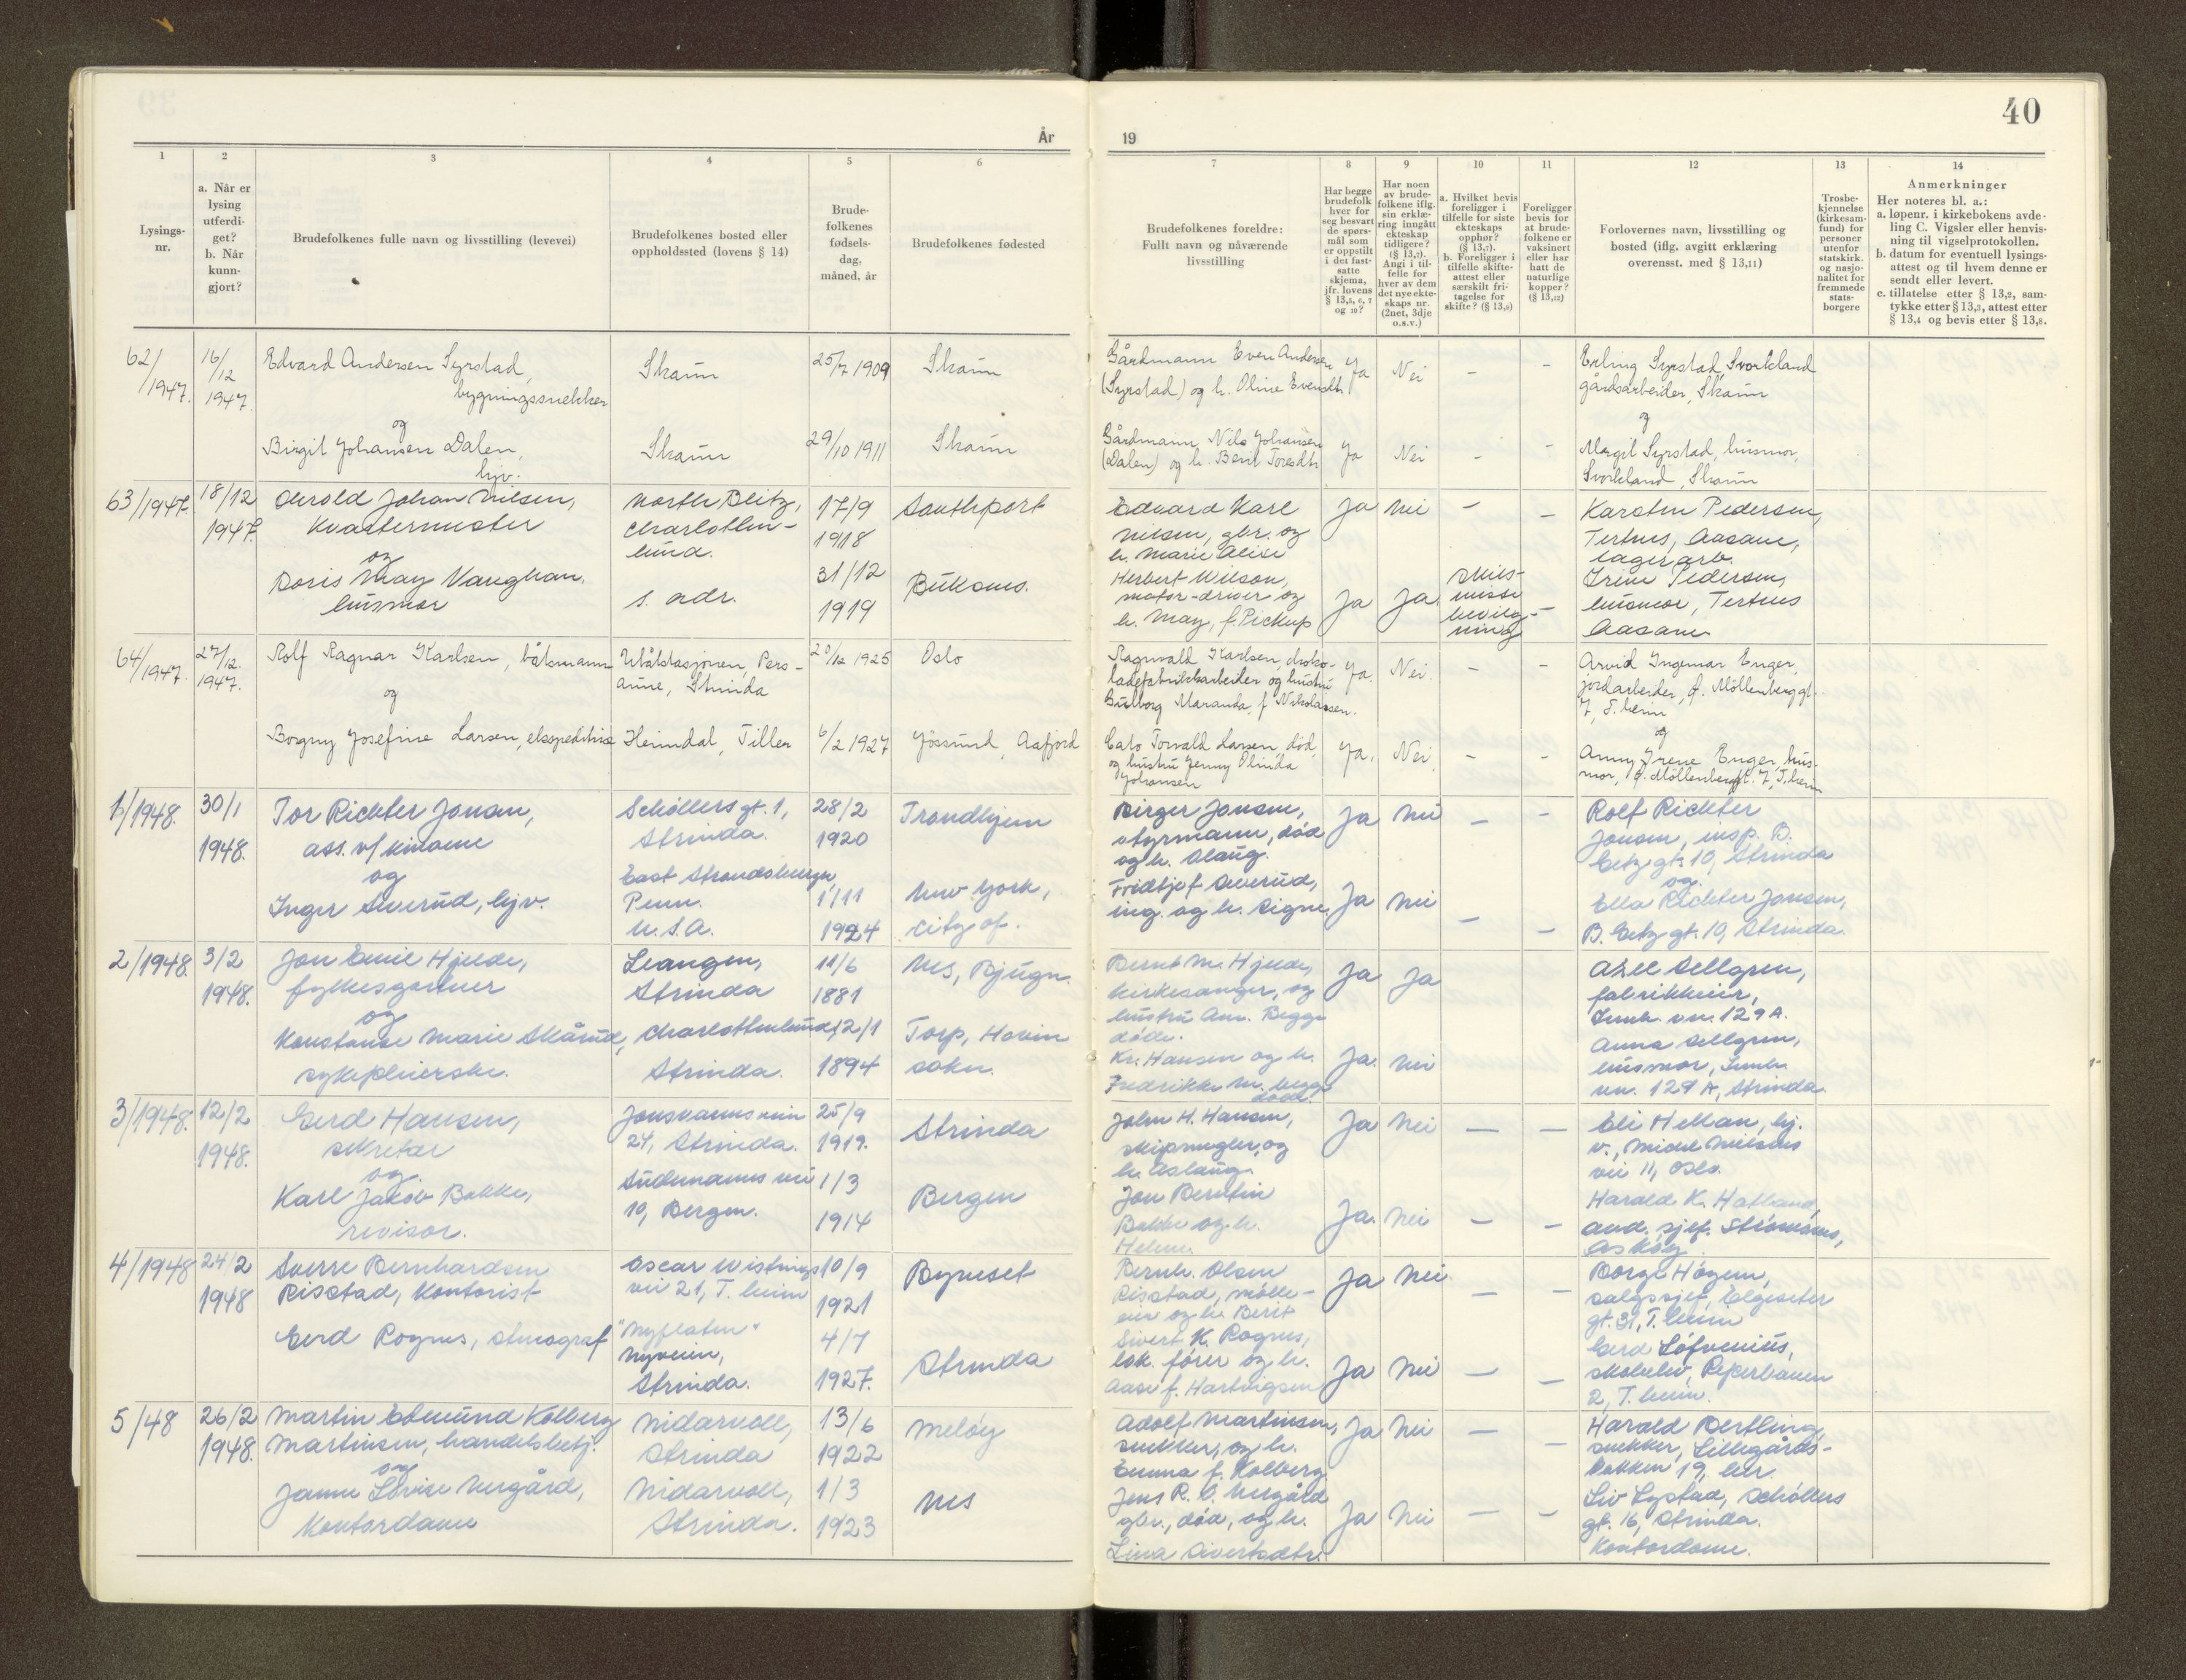 40
År
19
1
Lysings-
nr.
2
a. Når er
lysing
utferdi-
get?
b. Når
kunn-
gjort?
3
Brudefolkenes fulle navn og livsstilling (levevei)
4
Brudefolkenes bosted eller
oppholdssted (lovens § 14)
5
Brude-
folkenes
fødsels-
dag,
måned, år
6
Brudefolkenes fødested
7
Brudefolkenes foreldre:
Fullt navn og nåværende
livsstilling
8
Har begge
brudefolk
hver for
seg besvart
de spørs-
mål som
er oppstilt
i det fast-
satte
skjema,
jfr. lovens
§ 13,5, 6, 7
og 10?
9
Har noen
av brude-
folkene iflg.
sin erklæ-
ring inngått
ekteskap
tidligere?
(§ 13,7).
Angi i til-
felle for
hver av dem
det nye ekte-
skaps nr.
(2net, 3dje
o.s.v.)
10
a. Hvilket bevis
foreligger i
tilfelle for siste
ekteskaps
opphør?
(§ 13,7).
b. Foreligger i
tilfelle skifte-
attest eller
særskilt fri-
tagelse for
skifte? (§ 13,9)
11
Foreligger
bevis for
at brude-
folkene er
vaksinert
eller har
hatt de
naturlige
kopper?
(§ 13,12)
12
Forlovernes navn, livsstilling og
bosted (iflg. avgitt erklæring
overensst. med § 13,11)
13
Trosbe-
kjennelse
(kirkesam-
fund) for
personer
utenfor
statskirk.
og nasjo-
nalitet for
fremmede
stats-
borgere
14
Anmerkninger
Her noteres bl. a.:
a. løpenr. i kirkebokens avde-
ling C. Vigsler eller henvis-
ning til vigselprotokollen.
b. datum for eventuell lysings-
attest og til hvem denne er
sendt eller levert.
c. tillatelse etter § 13,2, sam-
tykke etter § 13,3, attest etter
§ 13,4 og bevis etter § 13,8.
62/
1947.
16/
12
1947.
Edvard Andersen Syrstad,
bygningssnekker
og
Birgit Johansen Dalen,
hjv.
Skaun
Skaun
25/7 1909
29/10 1911
Skaun
Skaun
Gårdmann Even Andersen
(Syrstad) og h. Oline Evensdtr.
Gårdmann Nils Johansen
(Dalen) og h. Berit Toresdtr.
Ja
Nei
-
-
Ja
Nei
-
-
Erling Syrstad, Svorkland
gårdsarbeider, Skaun
og
Margit Syrstad, husmor,
Svorkland, Skaun
63/1947.
18/12
1947.
Harold Johan Nilsen,
Kvartermester
og
Doris May Vaughan,
husmor
North Blitz,
Charlotten-
lund.
s. adr.
17/9
1918
31/12
1919
Southport
Edvard Karl
Nilsen, gbr. og
h. Marie Alise
Herbert Wilson,
motor-driver og
h. May, f. Pickup
Ja
nei
-
-
Ja
Ja
skils-
misse
bevilg-
ning
-
Karsten Pedersen,
Tertnes, Aasane,
lagerarb.
Irene Pedersen,
husmor, Tertnes
Aasane
64/1947.
27/12.
1947.
Rolf Ragnar Karlsen, båtsmann
og
Borgny Josefine Larsen, ekspeditrise
Ubåtstasjonen, Pers-
aune, Strinda
Heimdal, Tiller
20/12 1925
6/2 1927
Oslo
Jössund, Aafjord
Ragnvald Karlsen, choko-
ladefabrikkarbeider og hustru
Gulborg Maranda, f. Nikolaisen.
Cato Torvald Larsen, død,
og hustru Jenny Olinda
Johansen
Ja.
Nei.
-
-
Ja.
Nei.
-
-
Arvid Ingemar Enger,
jordarbeider, ö. Möllenberg gt.
7, T.heim
og
Anny Irene Enger, hus-
mor, ö. Möllenberggt. 7, T.heim
1/1948.
30/1
1948.
Tor Richter Jonsen,
ass. v/kinoene
og
Inger Siverud, hjv.
Schøllers gt. 1,
Strinda.
East Stroudsburger,
Penn.
U.S.A.
28/2
1920
1/11
1924
Trondhjem
New York,
City of.
Birger Jonsen,
styrmann, død
og h. Olaug.
Fridtjof Siverud,
ing. og h. Signe.
Ja
nei
-
-
Ja
nei
-
-
Rolf Richter
Jonsen, insp. B.
Getz gt. 10, Strinda
og
Ella Richter Jonsen,
B. Getz gt. 10, Strinda.
2/1948.
3/2
1948.
Jon Emil Hjelde,
fylkesgartner
og
Konstanse Marie Skårud,
sykepleierske.
Leangen,
Strinda
Charlottenlund,
Strinda.
11/6
1881
12/1
1894
Nes, Bjugn.
Torp, Hovin
sokn.
Bernt M. Hjelde,
kirkesanger, og
hustru Ane. Begge
døde.
Kr. Hansen og h.
Fredrikke M. begge
døde.
Ja
Ja
Ja.
nei
Axel Sellgren,
fabrikkeier,
129 A.
Anna Sellgren,
husmor,
129 A, Strinda
3/1948.
12/2
1948.
Gerd Hansen,
sekretær
og
Karl Jakob Bakke,
revisor.
Jonsvannsveien
24, Strinda.
vei
10, Bergen.
25/9
1919.
1/3
1914
Strinda
Bergen
John H. Hansen,
skipsmegler, og
h. Aslaug.
Jon Berntin
Bakke og h.
Helene
Ja
Nei
—
—
Ja.
nei
—
—
Eli Hellan, hj.
v., Michel Nielsens
vei 11, Oslo.
Harald K. Hatland,
avd. sjef. Strømsnes,
Askøy.
4/1948
24/2
1948
Sverre Bernhardsen
Risstad, kontorist
Gerd Rognes, stenograf
Oscar Wistings
vei 21, T.heim
"Nyplaten"
Nyveien,
Strinda.
10/9
1921
4/7
1927.
Byneset
Strinda
Bernh. Olsen
Risstad, mølle-
eier og h. Berit
Sivert K. Rognes,
lok. fører og h.
Aase f. Hartvigsen
Ja
Nei
—
—
Ja
Nei
—
—
Borge Høgem,
salgssjef, Elgeseter
gt. 31, T.heim
Gerd Löfvenius,
skoleelev, Reperbanen
2, T.heim.
5/48
26/2
1948.
Martin Edmund Kolberg
Martinsen, handelsbetj.
og
Janne Lovise Nergård,
Kontordame
Nidarvoll,
Strinda
Nidarvoll,
Strinda.
13/6
1922
1/3
1923
Meløy
Nes
Adolf Martinsen,
snekker, og h.
Emma f. Kolberg
Jens R. O. Nergård
gbr., død, og h.
Lina Sivertsdtr.
Ja
Nei
—
—
Ja
Nei
—
—
Harald Bertling,
snekker, Lillegårds-
bakken 19, her.
Liv Lystad, Schøllers
gt. 16, Strinda.
Kontordame.